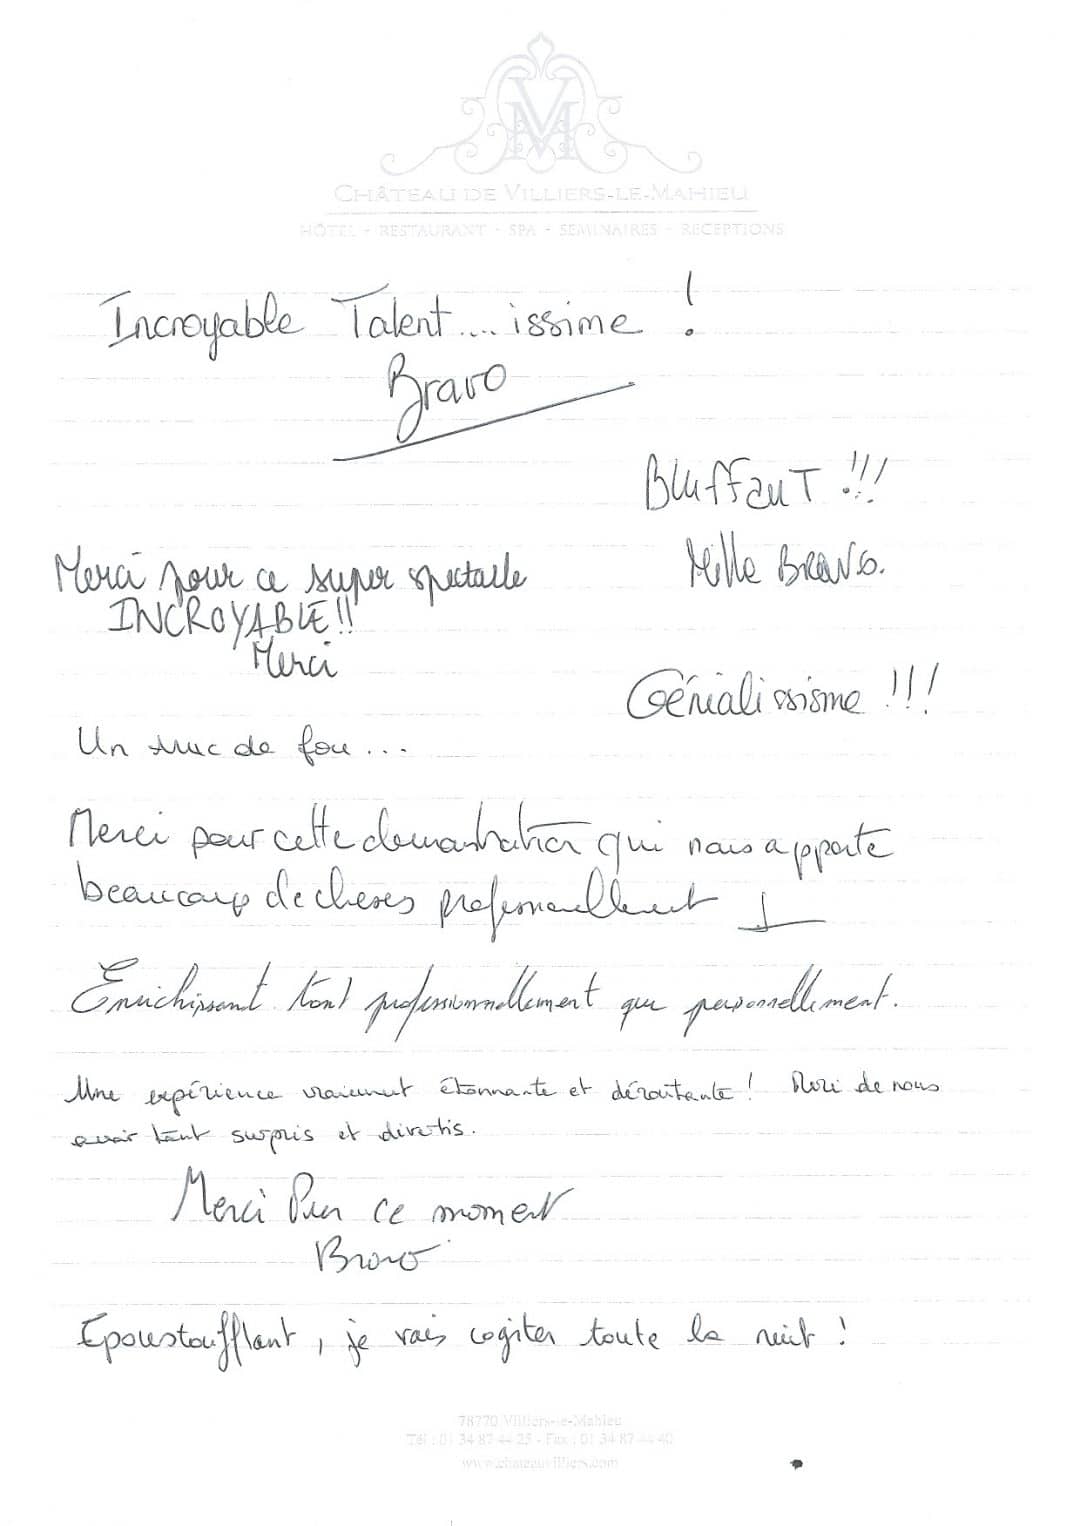 VM
CHÂTEAU DE VILLIERS-LE-MAHIEU
HÔTEL - RESTAURANT - SPA - SEMINAIRES - RECEPTIONS
Incroyable Talent....issime !
Bravo
Bluffant !!!
Mille Bravo.
Merci pour ce super spectacle
INCROYABLE !!
Merci
Génialissisme !!!
Un truc de fou ...
Merci pour cette demonstration qui nous apporte
beaucoup de choses professionnellement
Enrichissant tant professionnellement que personnellement.
Une expérience vraiment étonnante et déroutante ! Merci de nous
avoir tant surpris et divertis.
Merci Pour ce moment
Bravo
Epoustoufflant, je vais cogiter toute la nuit !
78770 Villiers-le-Mahieu
Tél : 01 34 87 44 25 - Fax : 01 34 87 44 40
www.chateauvilliers.com